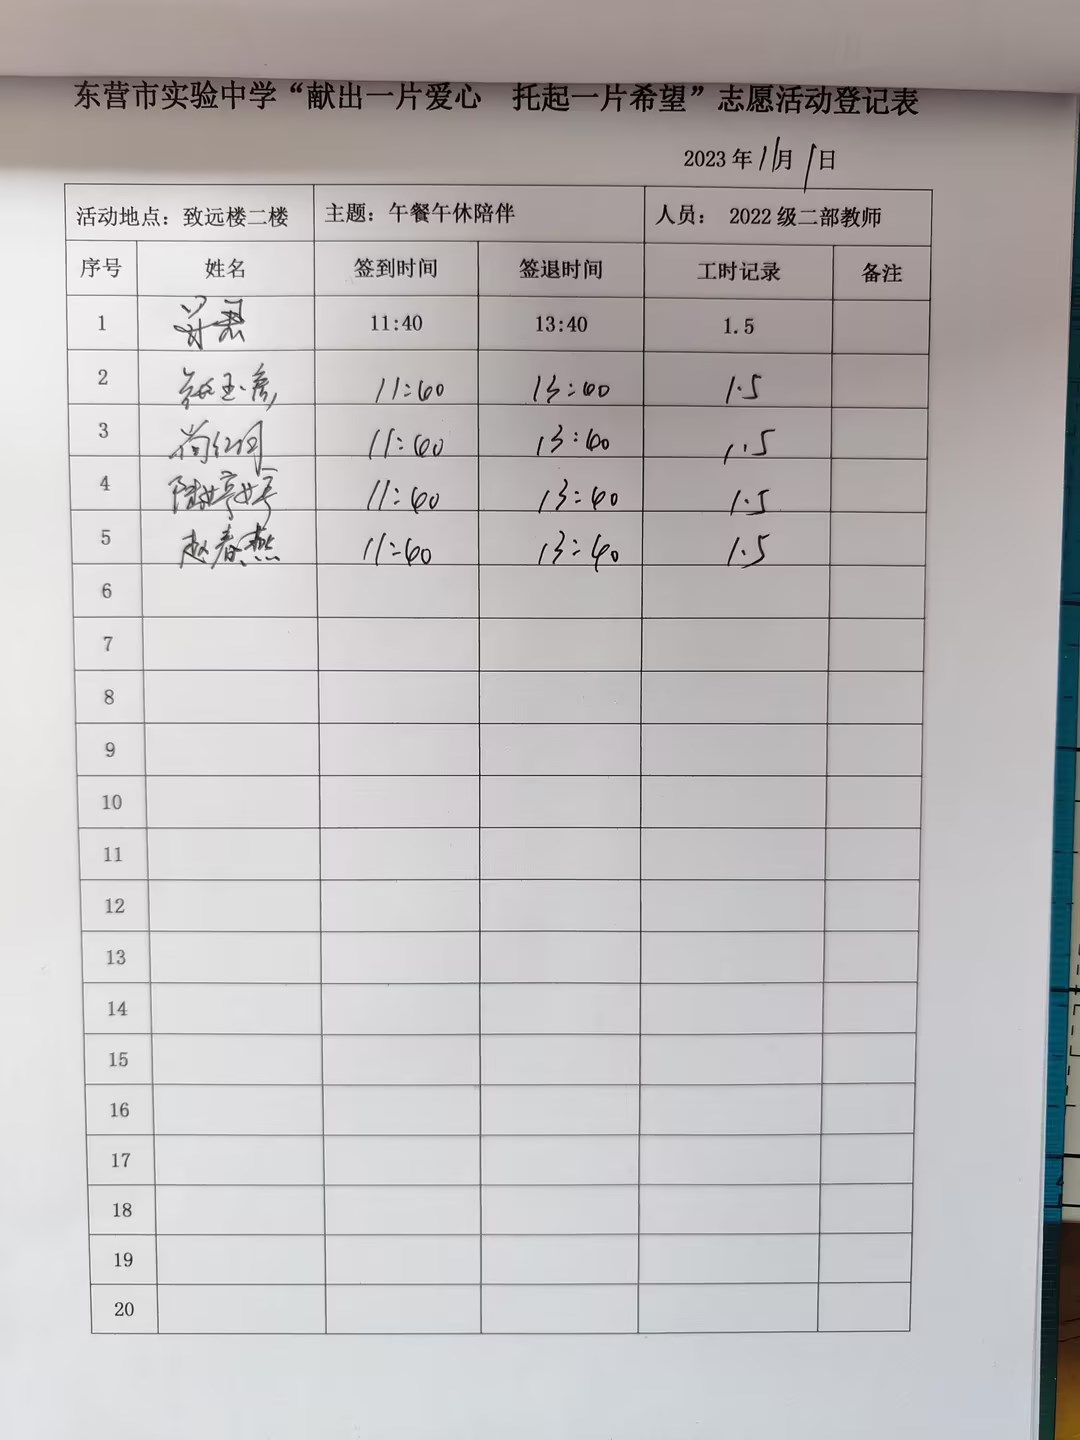 东营市实验中学“献出一片爱心 托起一片希望”志愿活动登记表
2023年11月1日
活动地点：致远楼二楼 主题：午餐午休陪伴 人员： 2022级二部教师
序号 姓名 签到时间 签退时间 工时记录 备注
1 11:40 13:40 1.5
2 11:40 13:40 1.5
3 11:40 13:40 1.5
4 陆婷婷 11:40 13:40 1.5
5 赵春燕 11:40 13:40 1.5
6
7
8
9
10
11
12
13
14
15
16
17
18
19
20